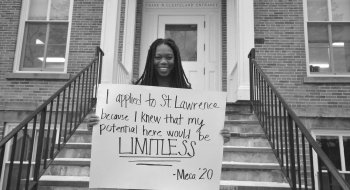 I applied to St Lawrence
because I knew that my
potential here would be
LIMITLESS
-Meca '20